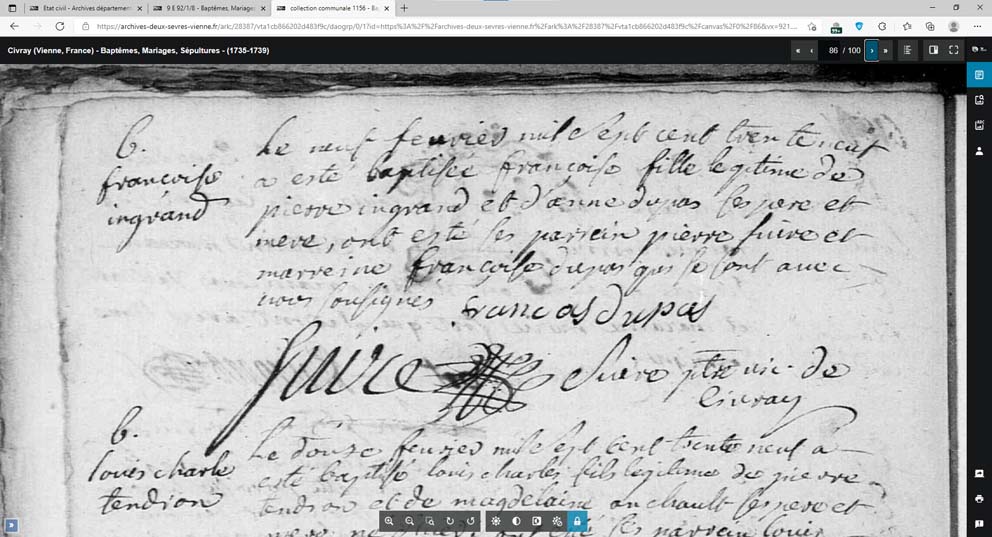 Etat civil - Archives département
9 E 92/1/8 - Baptêmes, Mariages
collection communale 1156 - Ba
https://archives-deux-sevres-vienne.fr/ark:/28387/vta1cb866202d483f9c/daogrp/0/1?id=https%3A%2F%2Farchives-deux-sevres-vienne.fr%2Fark:%2F28387%2Fvta1cb866202d483f9c%2Fcanvas%2F0%2F86&vx=921...
99+
Civray (Vienne, France) - Baptêmes, Mariages, Sépultures - (1735-1739)
« ‹ 86 / 100 › »
b.
françoise
ingrand
Le neuf feuvrier mil sept cent trente neuf
a esté baptisée françoise fille legitime de
pierre ingrand et d'anne dupas ses pere et
mere, ont esté ses parrein pierre suire et
marreine françoise dupas qui se sont avec
nous sousignes francoas dupas
Suire
Suire ptre vic. de
Civray
b.
louis charle
tendron
Le douse feuvrier mil sept cent trente neuf a
esté baptisé louis charles fils legitime de pierre
tendron et de magdelaine anchault ses pere et
ses parrein louis